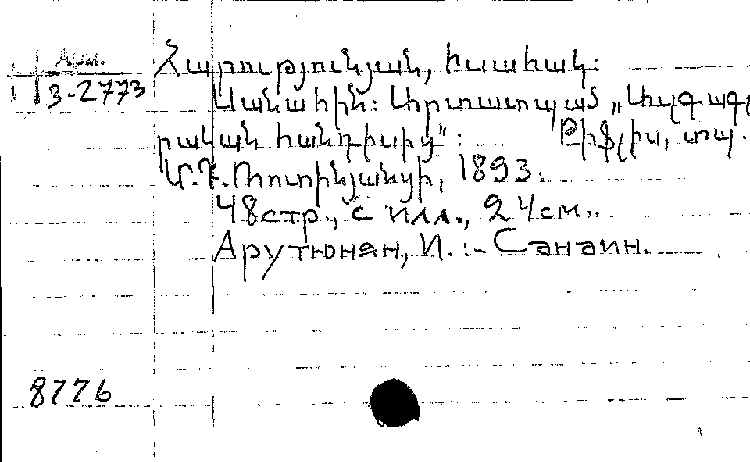 Арм.
3-2773
Հարությունյան, Իսահակ:
Սանահին: Արտատպած „Ազգագ
րական հանդիսից“: Թիֆլիս, տպ.
Մ.Դ. Ռոտինյանցի, 1893.
48 стр., с илл., 24 см..
Арутюнян, И. :- Санаин.
8776